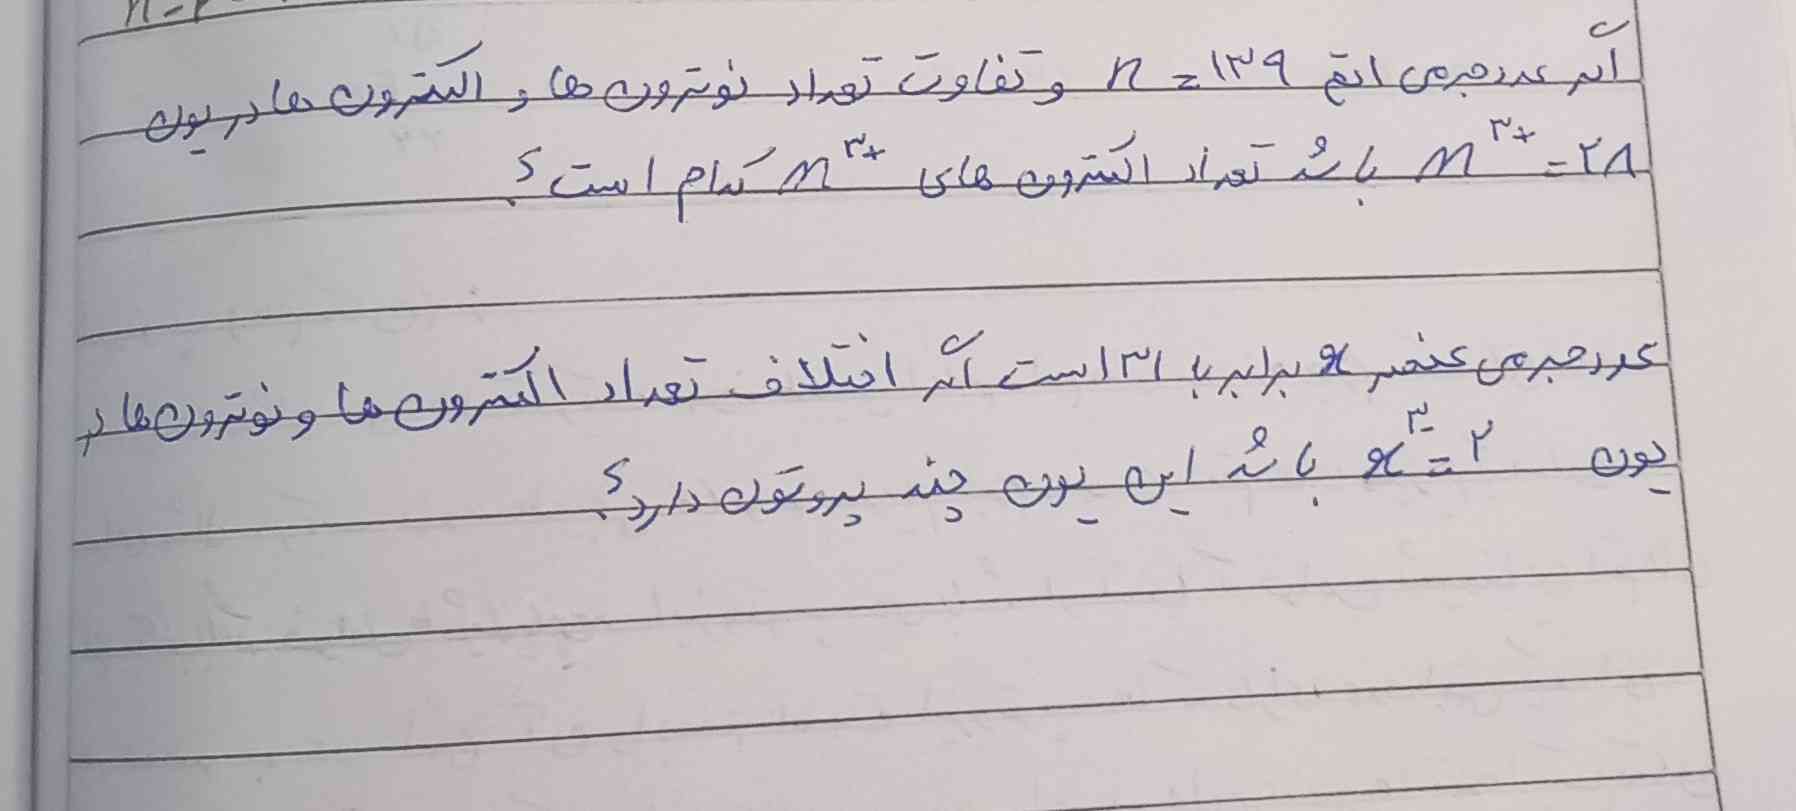 اگر عدد جرمی اتم n = ۱۳۹ و تفاوت تعداد نوترون ها و الکترون ها در یون
m³⁺ = ۲۸ باشد تعداد الکترون های m³⁺ کدام است؟
عدد جرمی عنصر x برابر با ۳۱ است اگر اختلاف تعداد الکترون ها و نوترون ها در
یون x³⁻ = ۲ باشد این یون چند پروتون دارد؟